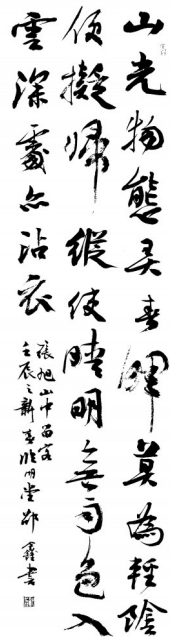 山光物態弄春暉莫為輕陰
便擬歸縱使晴明無雨色入
雲深處亦沾衣
張旭山中留客
壬辰之新春明堂鑫書